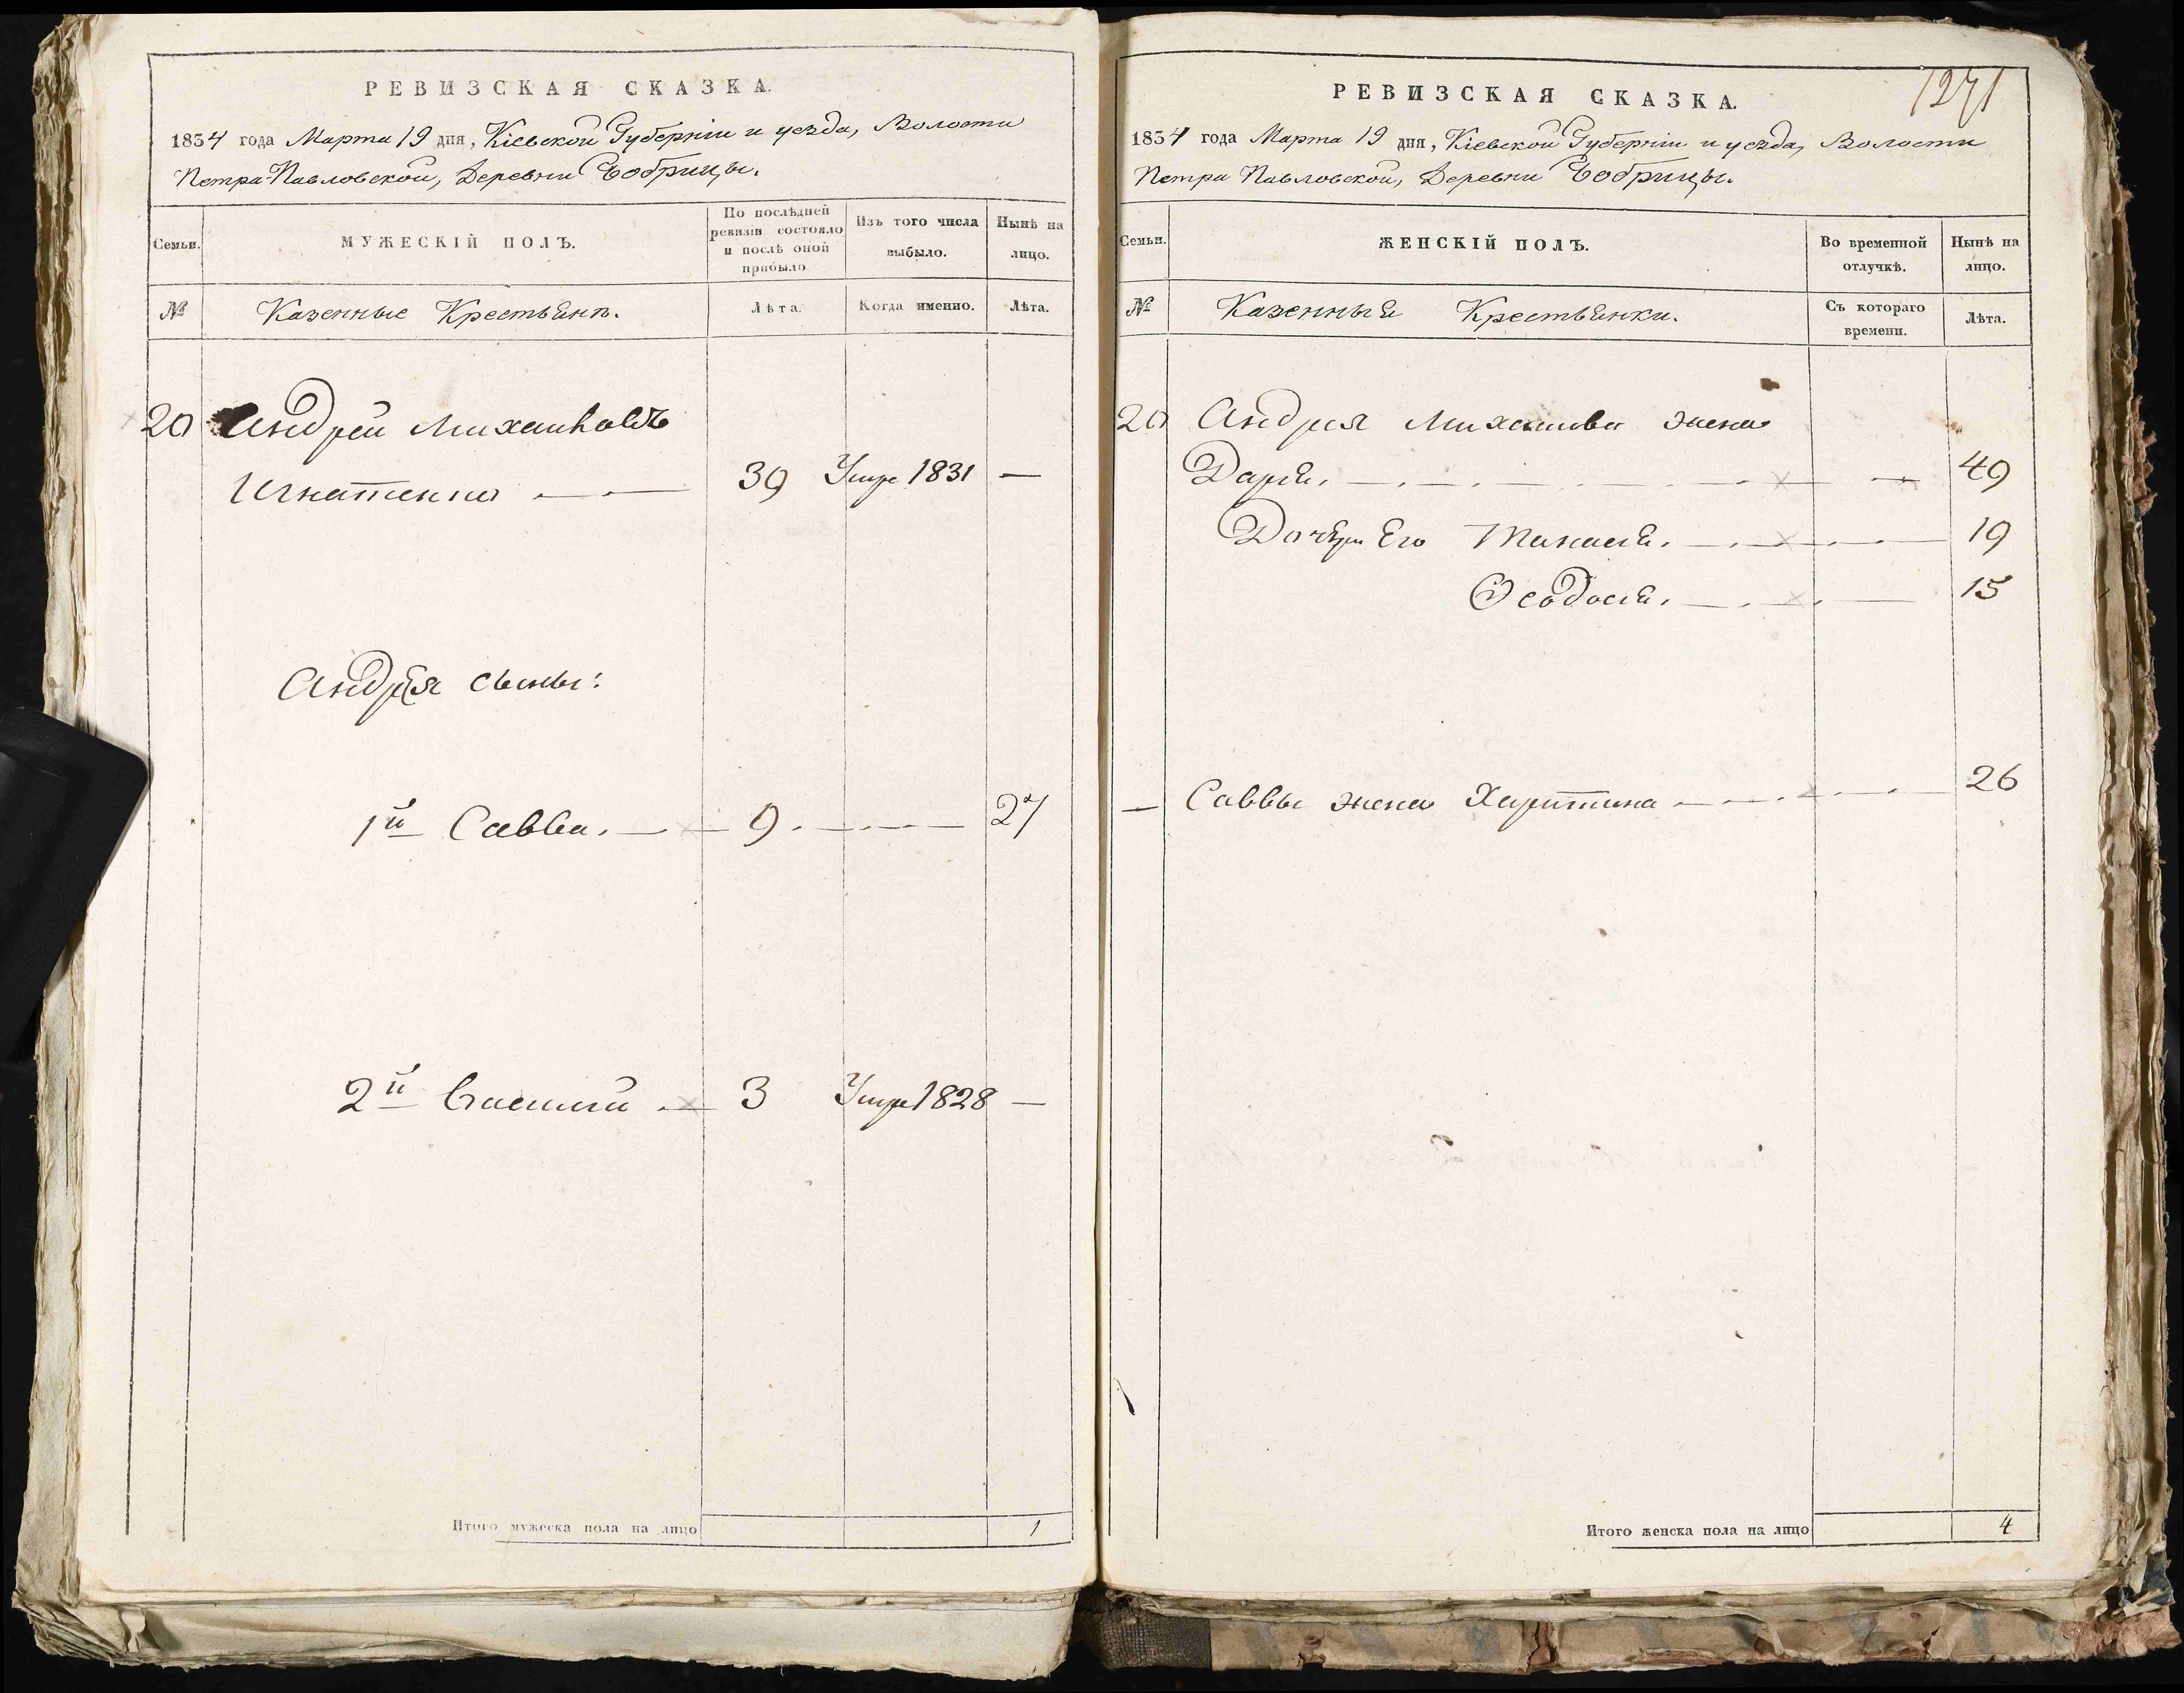 РЕВИЗСКАЯ СКАЗКА.
1834 года Марта 19 дня, Кіевской Губерніи и уезда, Волости
Петра Павловской, Деревни Бобрицы.
Семьи.
МУЖЕСКІЙ ПОЛЪ.
По послѣдней ревизіи состояло и послѣ оной прибыло
Изъ того числа выбыло.
Нынѣ на лицо.
№
Казенные Крестьяне.
Лѣта.
Когда именно.
Лѣта.
20 Андрей Михайловъ
Игнатенко 39 Умре 1831 —
Андрея сыны:
1й Савва. 9. 27
2й Василий 3 Умре 1828 —
Итого мужеска пола на лицо 1
1271
РЕВИЗСКАЯ СКАЗКА.
1834 года Марта 19 дня, Кіевской Губерніи и уезда, Волости
Петра Павловской, Деревни Бобрицы.
Семьи.
ЖЕНСКІЙ ПОЛЪ.
Во временной отлучкѣ.
Нынѣ на лицо.
№
Казенныя Крестьянки.
Съ котораго времени.
Лѣта.
20 Андрея Михайлова жена
Дарья. 49
Дочери Его 19
Ѳеодосья. 15
— Саввы жена Харитина 26
Итого женска пола на лицо 4